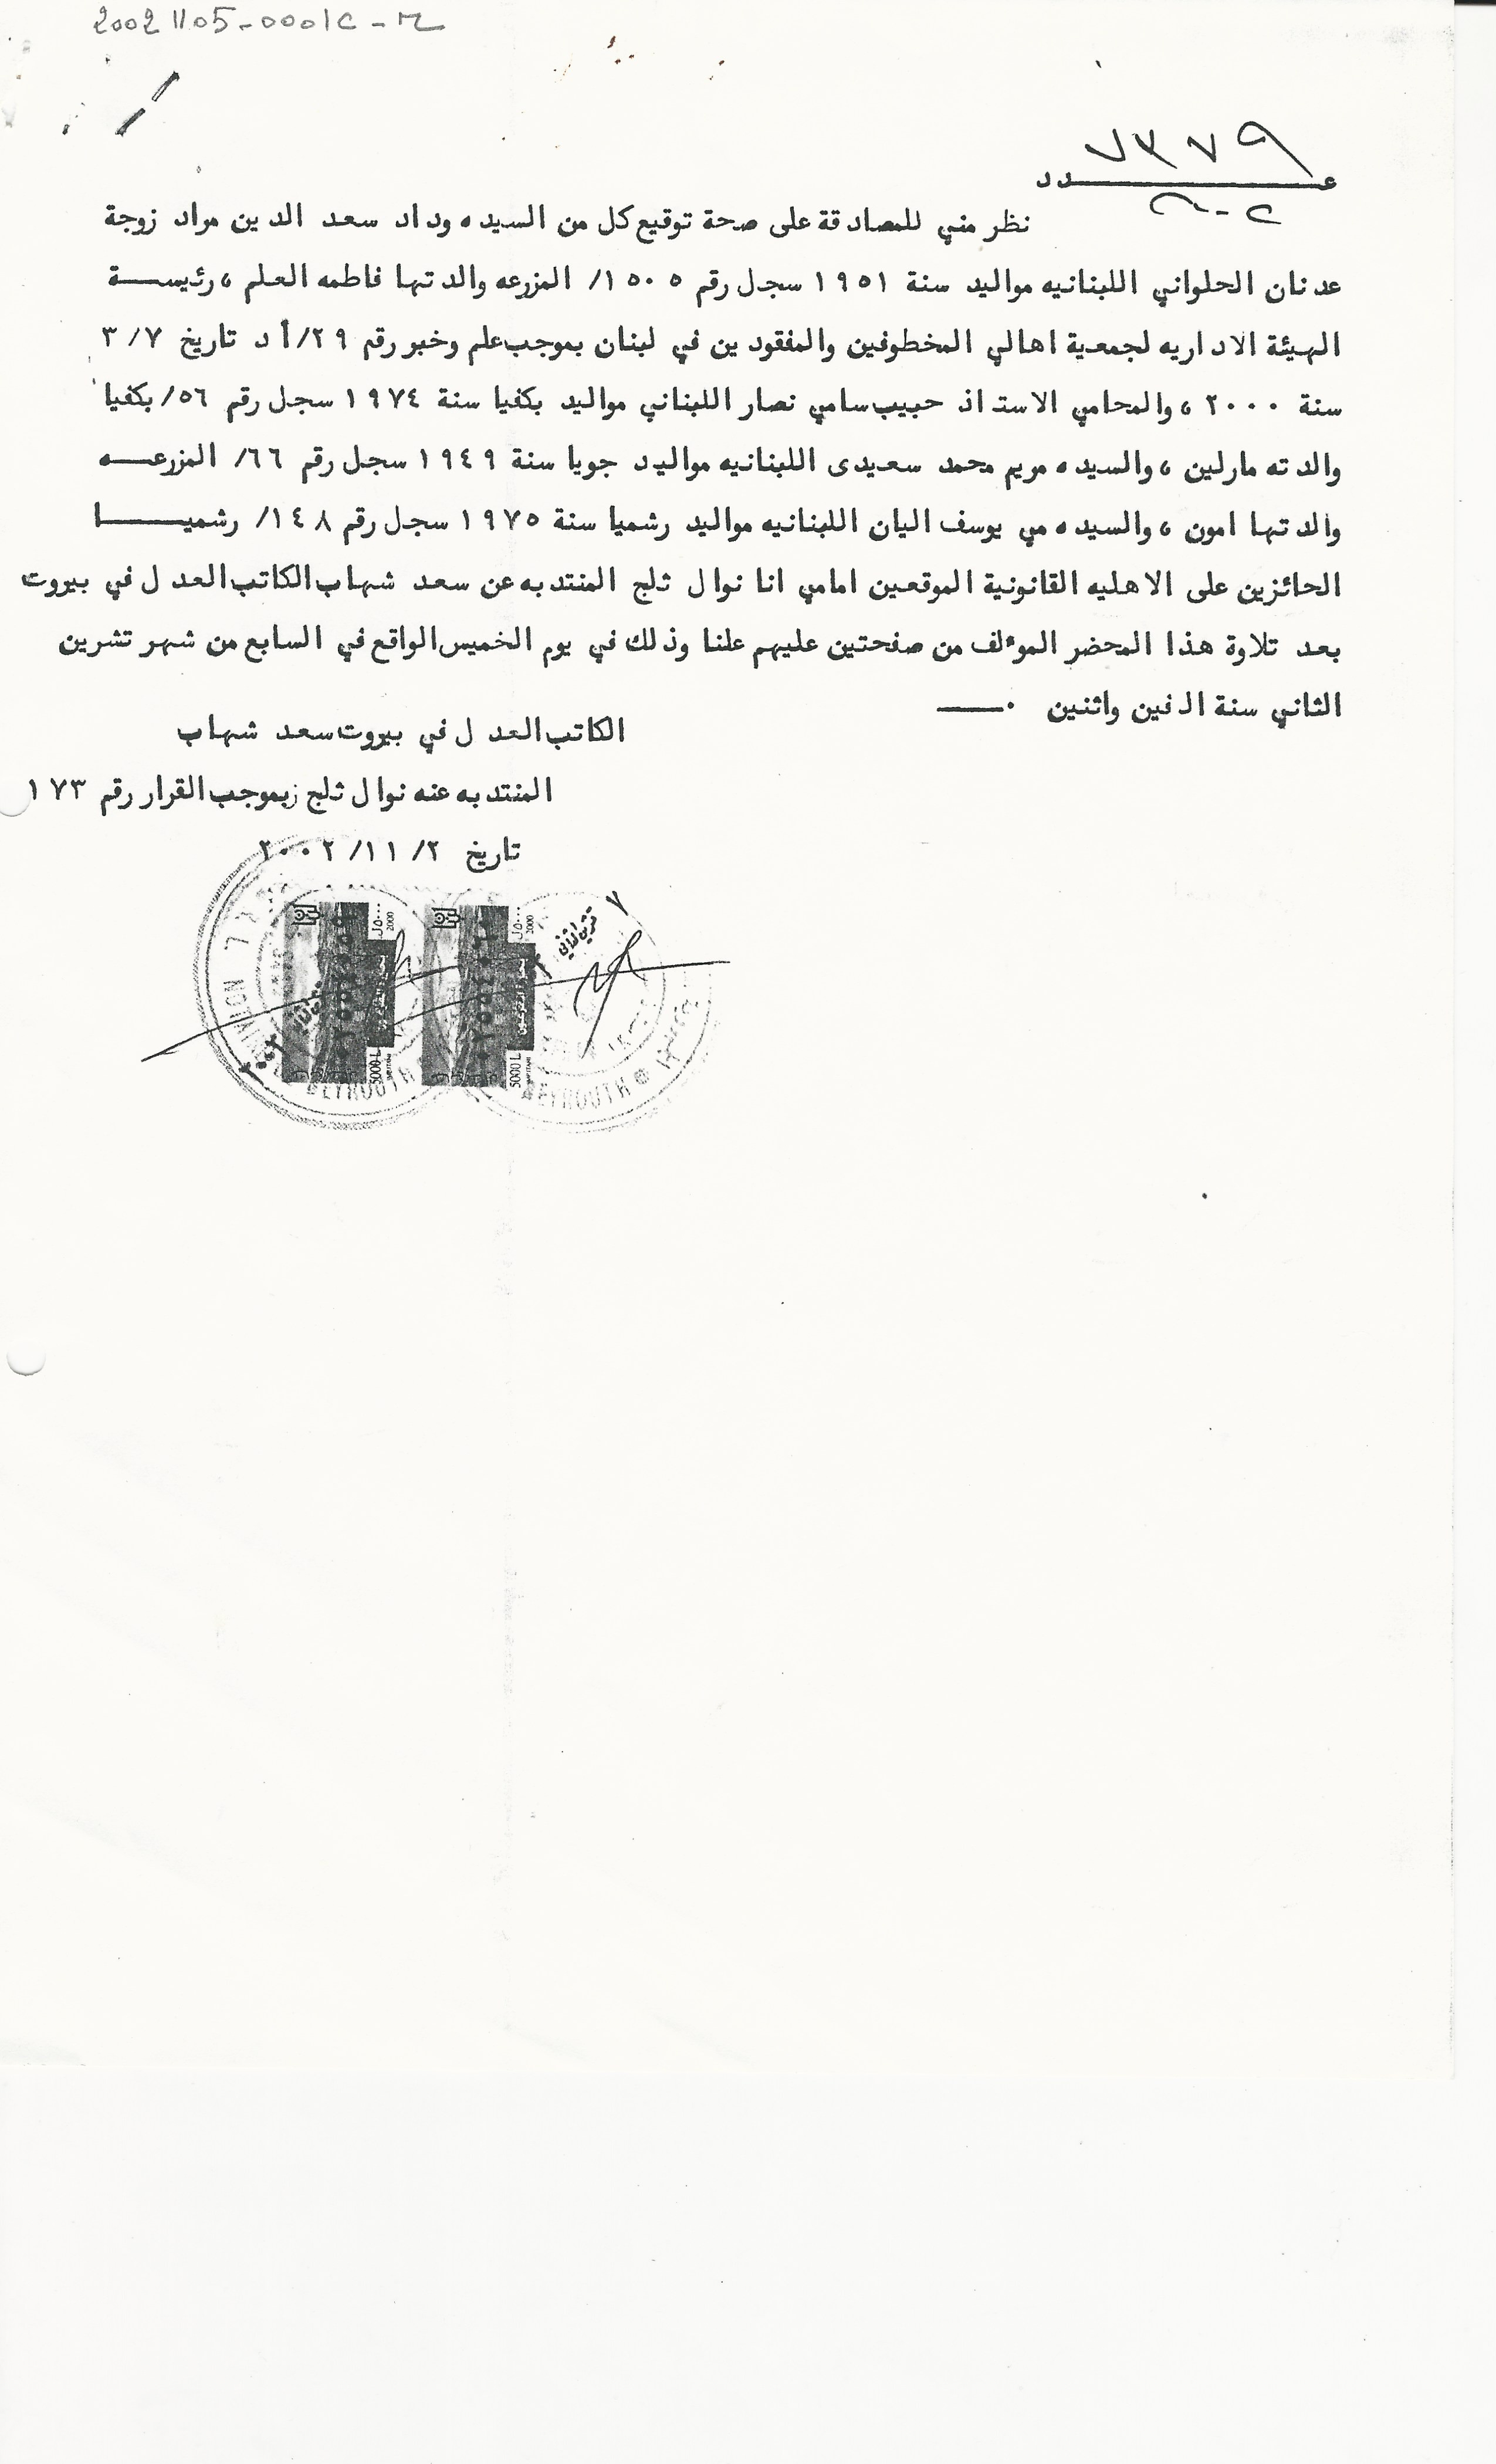 20021105-0001C-M
٧٣٧٩
عـــــدد
نظر مني للمصادقة على صحة توقيع كل من السيده وداد سعد الدين مراد زوجة
عدنان الحلواني اللبنانيه مواليد سنة ١٩٥١ سجل رقم ١٥٠٥/ المزرعه والدتها فاطمه العلم ، رئيســـة
الهيئة الاداريه لجمعية اهالي المخطوفين والمفقودين في لبنان بموجب علم وخبر رقم ٢٩/أ د تاريخ ٣/٧
سنة ٢٠٠٠ ، والمحامي الاستاذ حبيب سامي نصار اللبناني مواليد بكفيا سنة ١٩٧٤ سجل رقم ٥٦/ بكفيا
والدته مارلين ، والسيده مريم محمد سعيدى اللبنانيه مواليد جويا سنة ١٩٤٩ سجل رقم ٦٦/ المزرعـــه
والدتها امون ، والسيده مي يوسف اليان اللبنانيه مواليد رشميا سنة ١٩٧٥ سجل رقم ١٤٨/ رشميـــــا
الحائزين على الاهليه القانونية الموقعين امامي انا نوال ثلج المنتدبه عن سعد شهاب الكاتب العدل في بيروت
بعد تلاوة هذا المحضر المؤلف من صفحتين عليهم علنا وذلك في يوم الخميس الواقع في السابع من شهر تشرين
الثاني سنة الفين واثنين ٠ــــ
الكاتب العدل في بيروت سعد شهاب
المنتدبه عنه نوال ثلج بموجب القرار رقم ١٧٣
تاريخ ٢/١١/٢٠٠٢
٧ تشرين الثاني
5000 L
5000 L
2000
2000
BEYROUTH
BEYROUTH